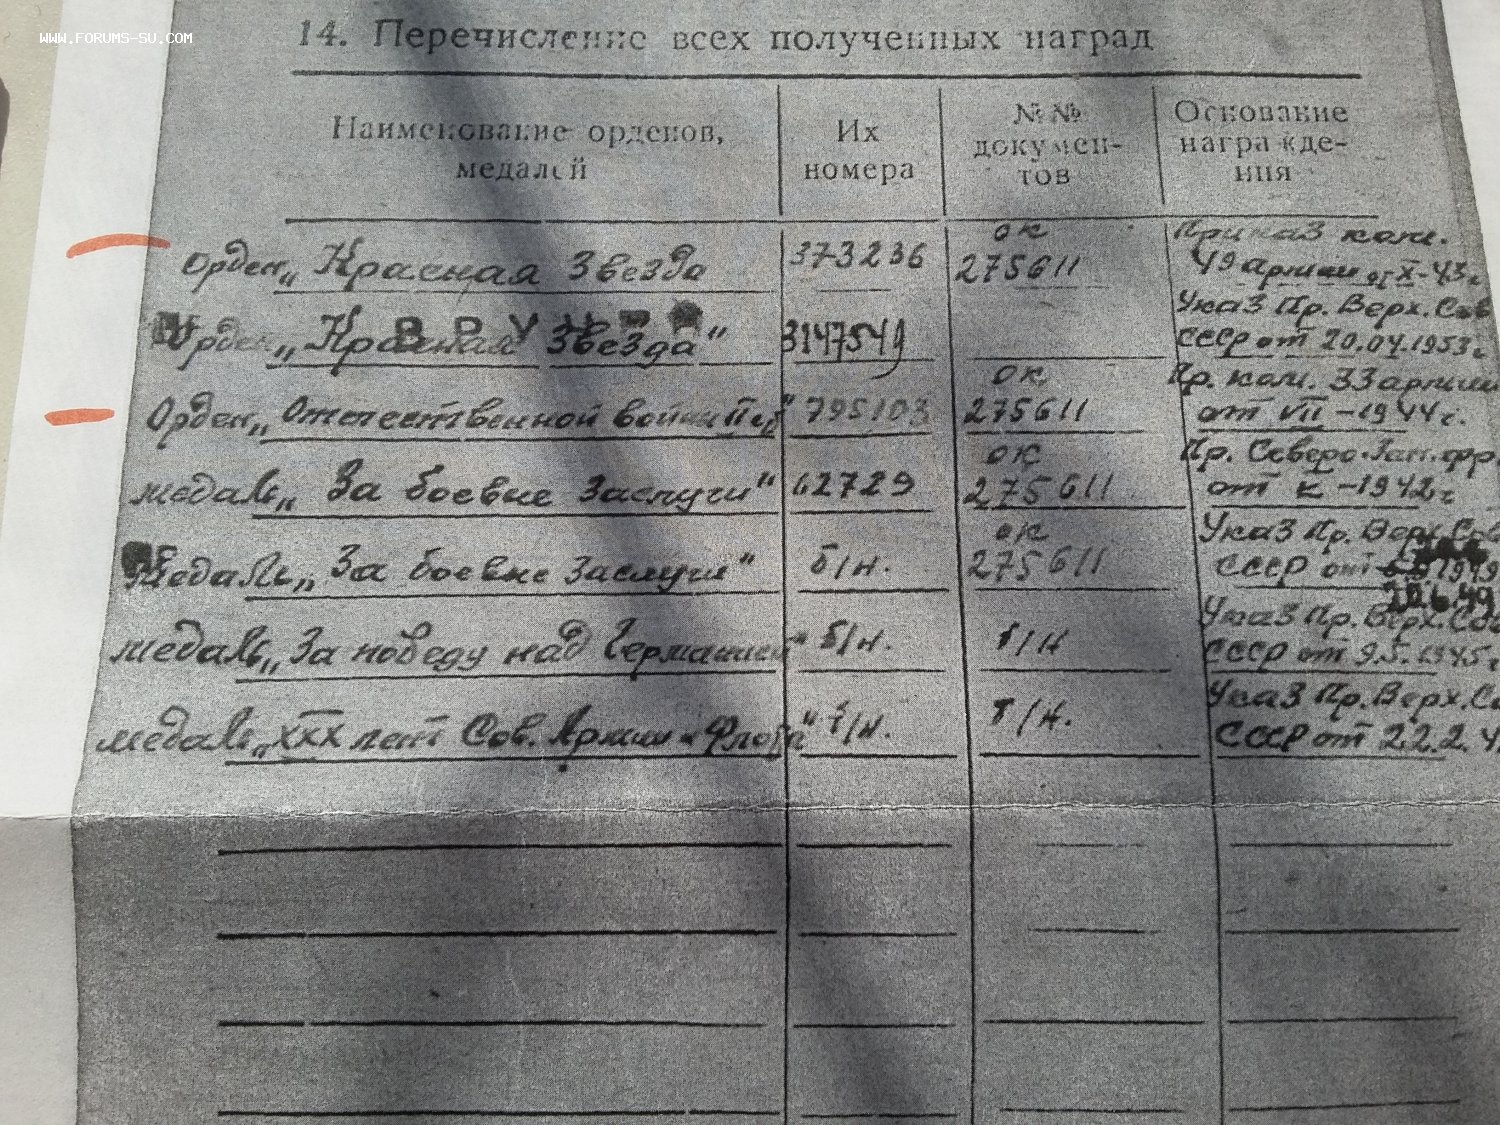 WWW.FORUMS-SU.COM
14. Перечисление всех полученных наград
Наименование орденов, медалей
Их номера
№№ документов
Основание награждения
Орден „Красная Звезда 373236 ок 275611 Приказ ком. 49 армии от X-43г
Орден „Красная Звезда" 3147549 Указ Пр. Верх. Сов СССР от 20.04.1953г
ВРУЧ
Орден „Отечественной войны II ст" 795103 ок 275611 Пр. ком. 33 армии от VII-1944г.
медаль „За боевые заслуги" 62729 ок 275611 Пр. Северо-Зап. фр. от -1942г
Медаль „За боевые заслуги" б/н. ок 275611 Указ Пр. Верх. Сов СССР от 1949
20.6.49
медаль „За победу над Германией" б/н. б/н Указ Пр. Верх. Сов СССР от 9.5.1945г
медаль „XXX лет Сов. Армии и Флота" б/н. б/н. Указ Пр. Верх. Со СССР от 22.2.4